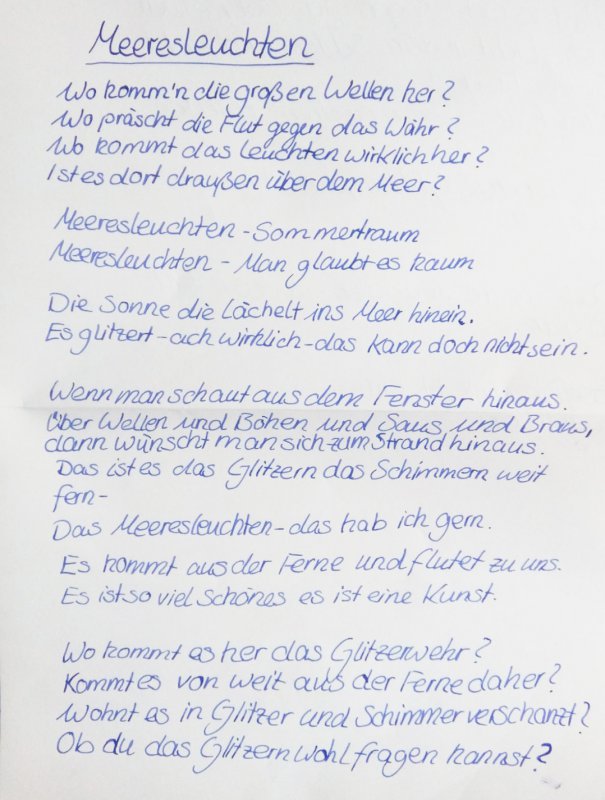 Meeresleuchten
Wo komm'n die großen Wellen her?
Wo präscht die Flut gegen das Währ?
Wo kommt das leuchten wirklich her?
Ist es dort draußen über dem Meer?
Meeresleuchten - Sommertraum
Meeresleuchten - Man glaubt es kaum
Die Sonne die lächelt ins Meer hinein.
Es glitzert - ach wirklich - das kann doch nicht sein.
Wenn man schaut aus dem Fenster hinaus.
Über Wellen und Böhen und Saus und Braus,
dann wünscht man sich zum Strand hinaus.
Das ist es das Glitzern das Schimmern weit
fern-
Das Meeresleuchten - das hab ich gern.
Es kommt aus der Ferne und flutet zu uns.
Es ist so viel Schönes es ist eine Kunst.
Wo kommt es her das Glitzerwehr?
Kommt es von weit aus der Ferne daher?
Wohnt es in Glitzer und Schimmer verschanzt?
Ob du das Glitzern wohl fragen kannst?